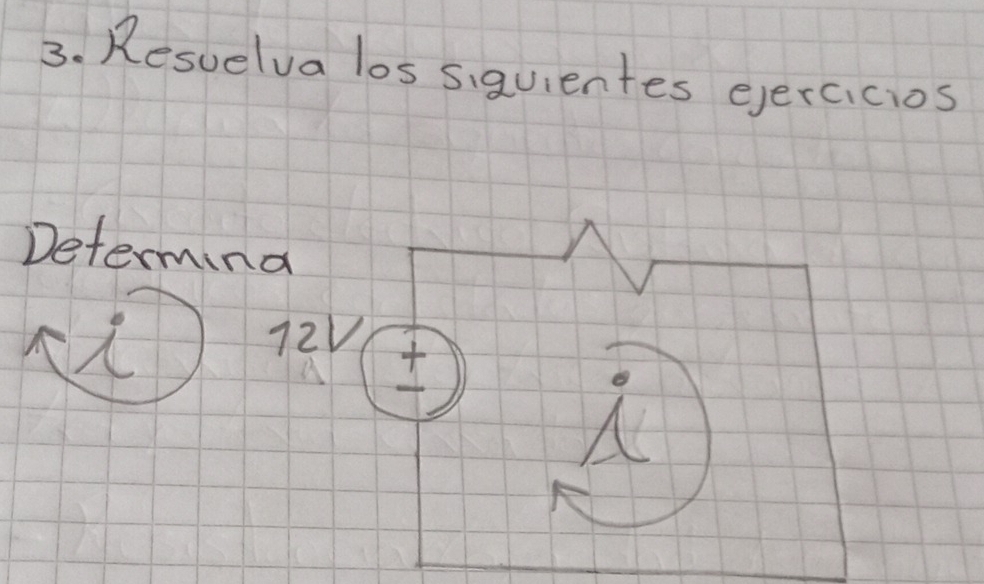 3. Resuelva los siguientes ejercicios
Determina
i
12V
+
-
i